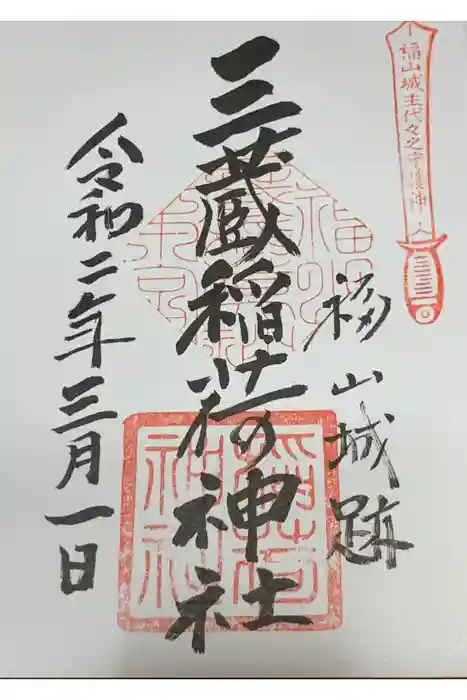 福山城主代々之守護神
福山城跡
三蔵稲荷神社
稲荷神社
令和二年三月一日